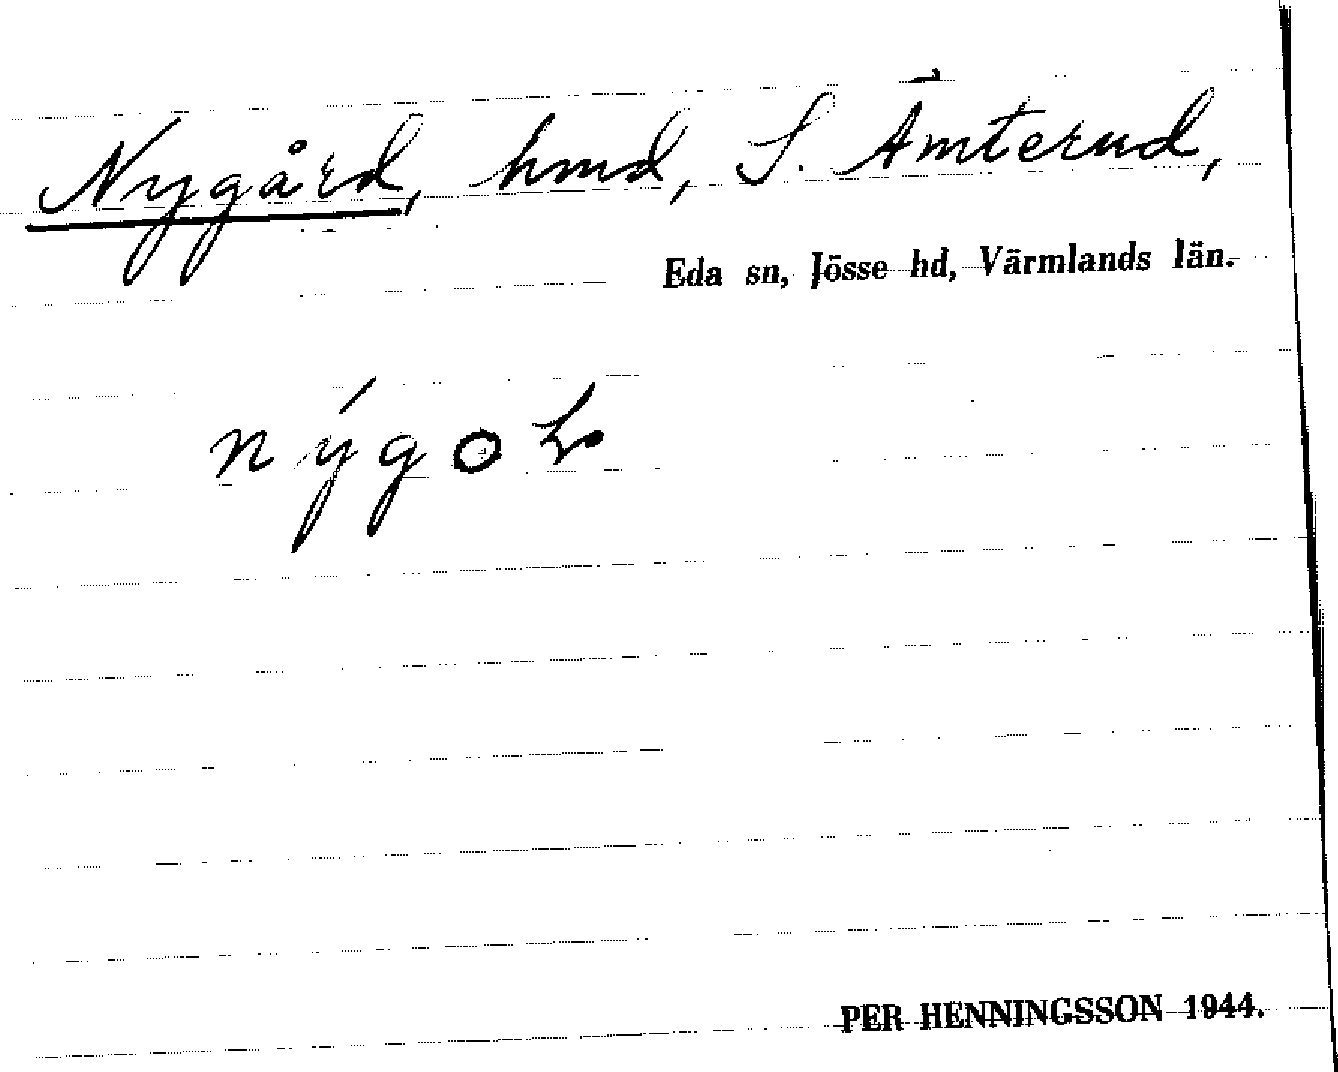 Nygård, hmd, S. Ämterud,
Eda sn, Jösse hd, Värmlands län.
PER HENNINGSSON 1944.